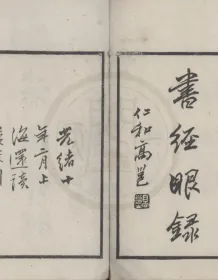 書經眼錄
仁和高邕
光緒十
年二月上
海還讀